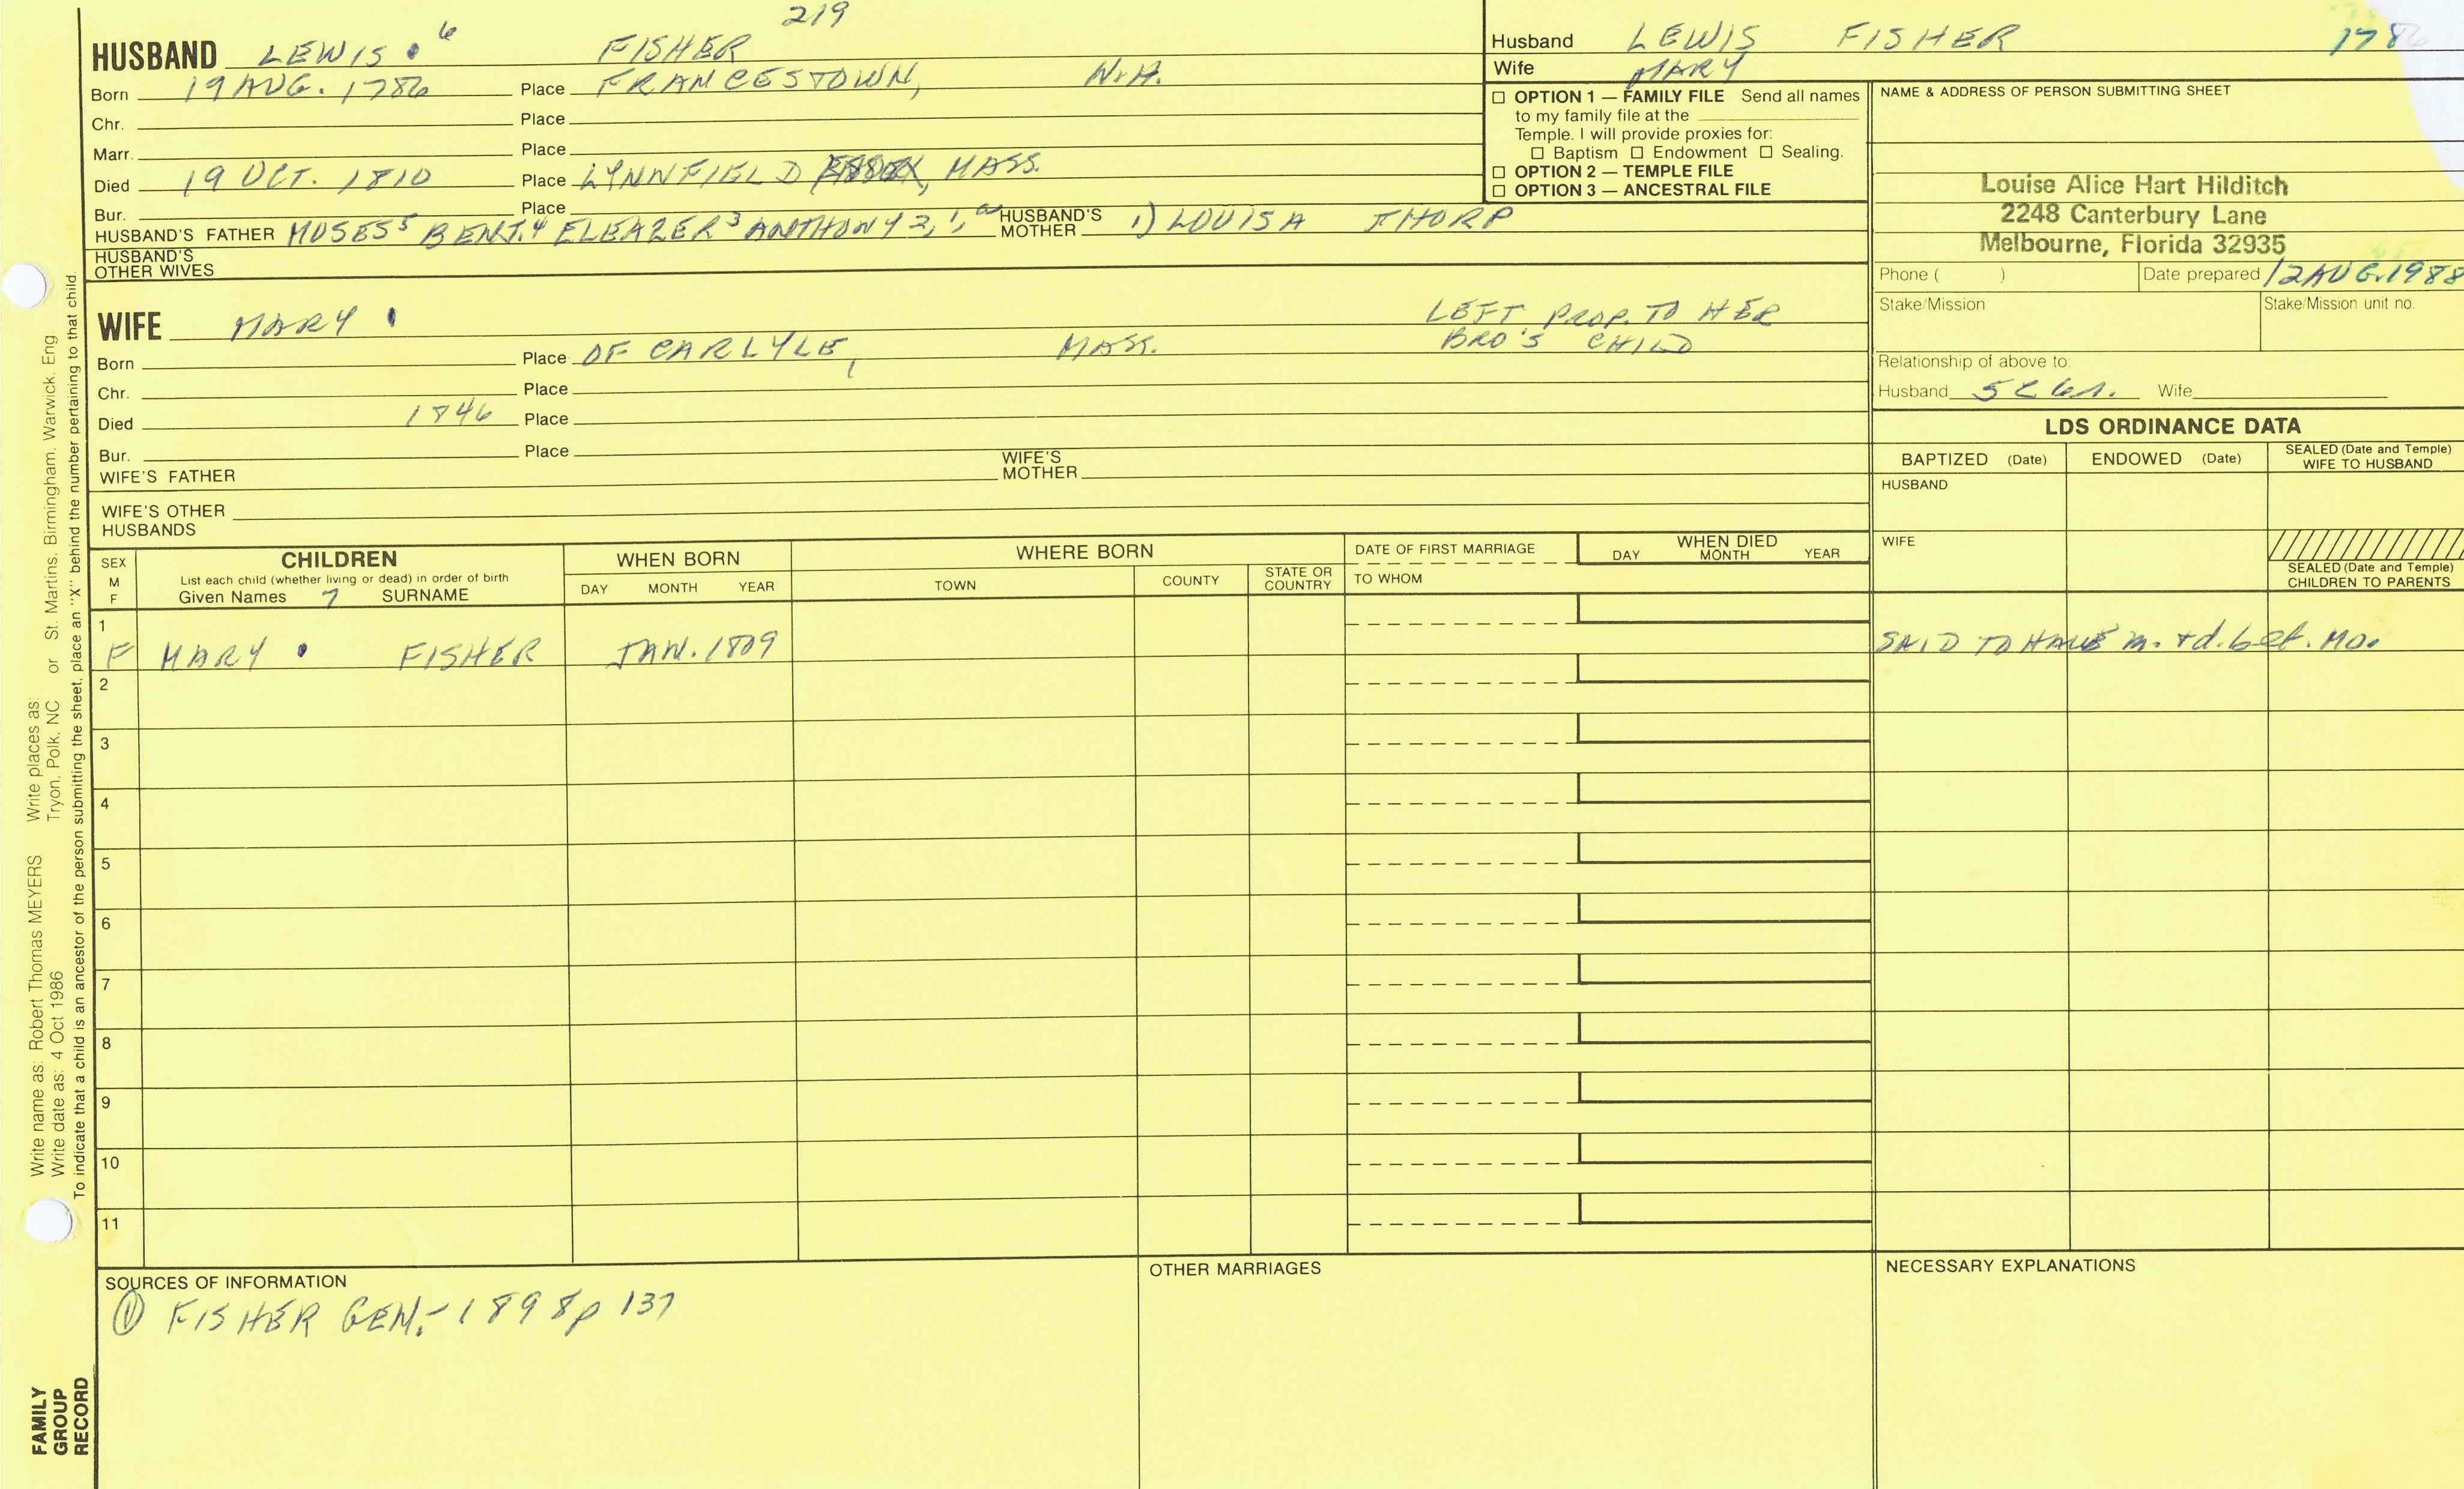 219
HUSBAND LEWIS 6 FISHER
Born 19 AUG. 1786 Place FRANCESTOWN, N.H.
Chr. Place
Marr. Place
Died 19 OCT. 1810 Place LYNNFIELD ESSEX, MASS.
Bur. Place
HUSBAND'S FATHER MOSES 5 BENJ. 4 ELEAZER 3 ANTHONY 2, 1, HUSBAND'S MOTHER 1) LOUISA THORP
HUSBAND'S
OTHER WIVES
WIFE MARY
LEFT PROP. TO HER
BRO'S CHILD
Born Place OF CARLYLE, MASS.
Chr. Place
Died 1846 Place
Bur. Place
WIFE'S FATHER WIFE'S MOTHER
WIFE'S OTHER
HUSBANDS
Husband LEWIS FISHER 1786
Wife MARY
☐ OPTION 1 — FAMILY FILE Send all names
to my family file at the
Temple. I will provide proxies for:
☐ Baptism ☐ Endowment ☐ Sealing.
☐ OPTION 2 — TEMPLE FILE
☐ OPTION 3 — ANCESTRAL FILE
NAME & ADDRESS OF PERSON SUBMITTING SHEET
Louise Alice Hart Hilditch
2248 Canterbury Lane
Melbourne, Florida 32935
Phone ( ) Date prepared 12 AUG. 1988
Stake/Mission Stake/Mission unit no.
Relationship of above to:
Husband 5C 6R. Wife
LDS ORDINANCE DATA
BAPTIZED (Date) ENDOWED (Date) SEALED (Date and Temple)
WIFE TO HUSBAND
HUSBAND
WIFE
SEALED (Date and Temple)
CHILDREN TO PARENTS
SEX
M
F
CHILDREN
List each child (whether living or dead) in order of birth
Given Names SURNAME
WHEN BORN
DAY MONTH YEAR
WHERE BORN
TOWN COUNTY STATE OR COUNTRY
DATE OF FIRST MARRIAGE
TO WHOM
WHEN DIED
DAY MONTH YEAR
1
F MARY FISHER JAN. 1809 SAID TO HAVE m. + d. bef. MO.
2
3
4
5
6
7
8
9
10
11
SOURCES OF INFORMATION
① FISHER GEN.- 1898 p 137
OTHER MARRIAGES
NECESSARY EXPLANATIONS
Write name as: Robert Thomas MEYERS Write places as:
Write date as: 4 Oct 1986 Tryon, Polk, NC or St. Martins, Birmingham, Warwick, Eng
To indicate that a child is an ancestor of the person submitting the sheet, place an "X" behind the number pertaining to that child.
FAMILY
GROUP
RECORD